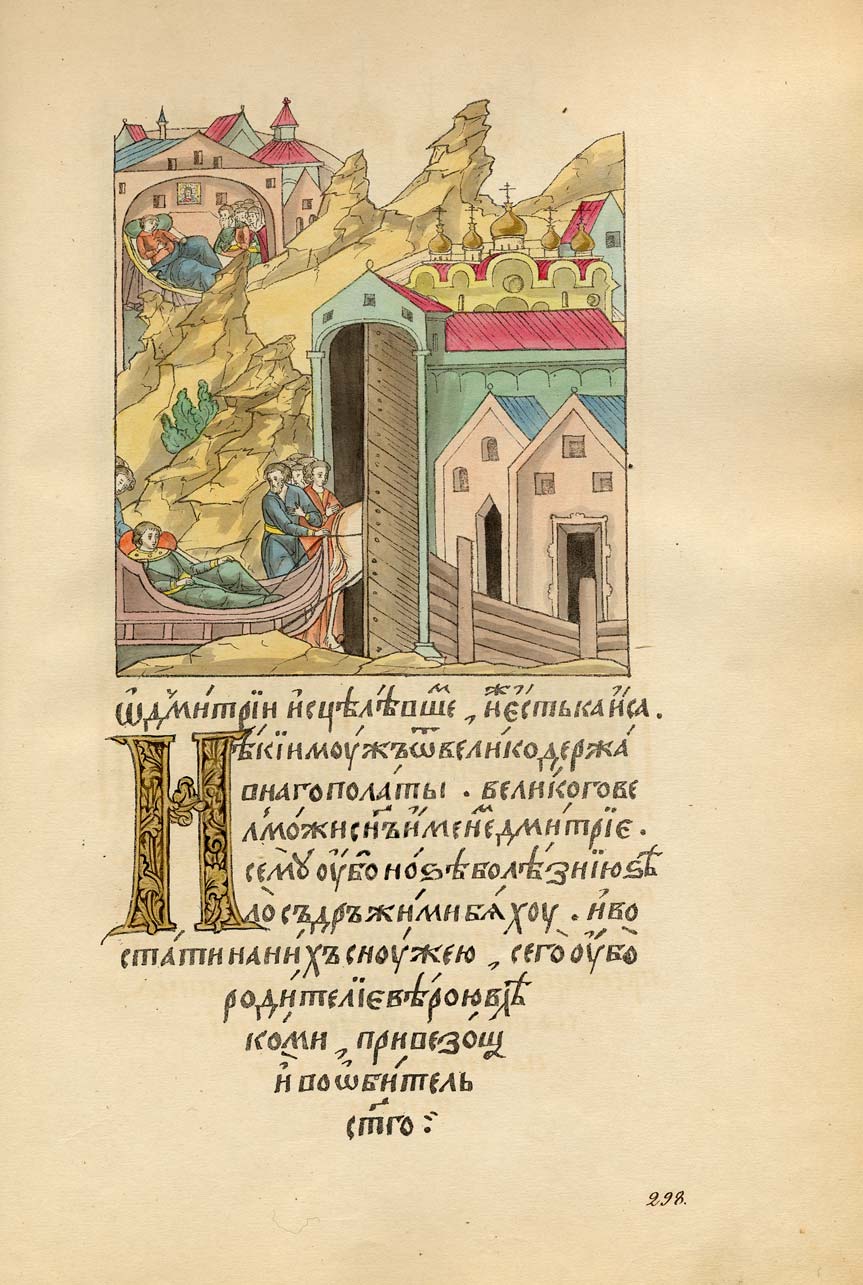 Ѡ дми́трїи и҆сцѣлѣвшⷨе , не́жⷨ є҆сть каѝса .
Нѣкїи моу́жъ ѿ велѝкодержа́
внаго пола́ты . вели́кого ве
лⷨможи сн҃ъ и҆́менеⷨ дми́трїе .
семꙋ̀ оу҆́бо но́ѕѣ болѣ́знїю ѕѣ
ло̀ съдръжи́ми бѧ́хоу . и҆ во
ста́ти на ни́хъ сноу́жею , сего̀ оу҆́бо̀
роди́телїе вѣ́рою вл҃ѣ
ко́ми , привезо́ш
и҆̀ во ѡ҆би́тель
ст҃го :
298.